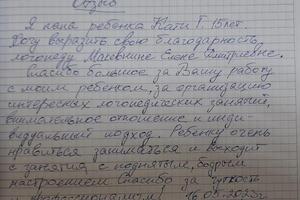 Отзыв
Я папа ребенка Кати Г. 15 лет.
Хочу выразить свою благодарность,
логопеду Елене Дмитриевне.
Спасибо большое за Вашу работу
с моим ребенком, за организацию
интересных логопедических занятий,
внимательное отношение и инди-
видуальный подход. Ребенку очень
нравиться заниматься и выходит
с занятия с поднятым, бодрым
настроением. Спасибо за чуткость
и профессионализм! 16.05.2023г.